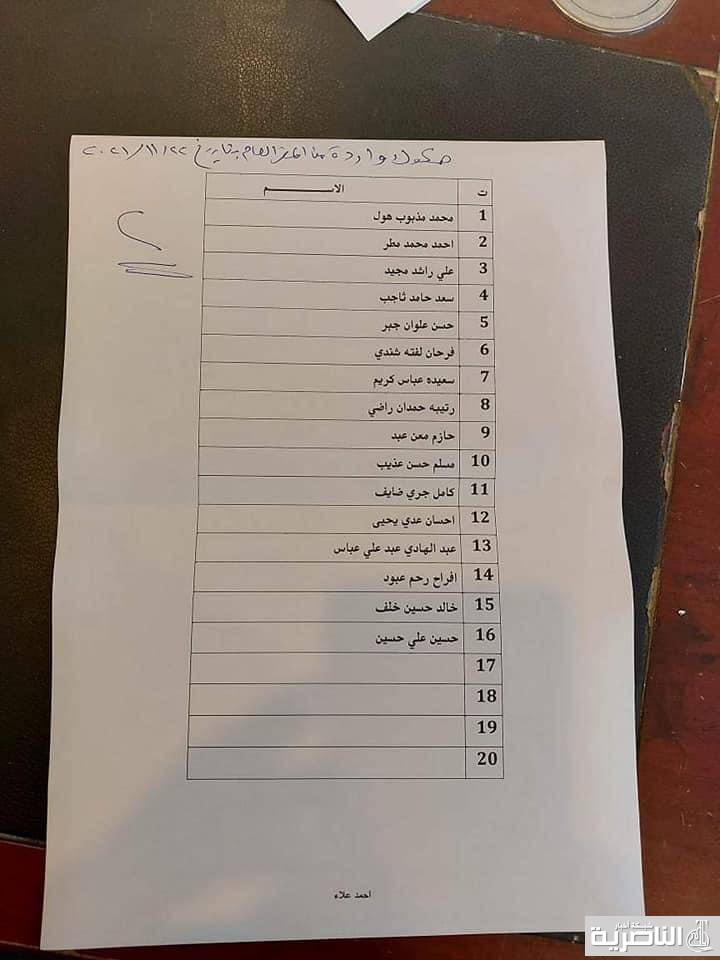 صكوك واردة من المقر العام بتاريخ ٢٠٢١/١١/٢٢
٢
ت الاســـــــم
1 محمد مذبوب هول
2 احمد محمد مطر
3 علي راشد مجيد
4 سعد حامد ثاجب
5 حسن علوان جبر
6 فرحان لفته شندي
7 سعيده عباس كريم
8 رتيبه حمدان راضي
9 حازم معن عبد
10 مسلم حسن عذيب
11 كامل جري ضايف
12 احسان عدي يحيى
13 عبد الهادي عبد علي عباس
14 افراح رحم عبود
15 خالد حسين خلف
16 حسين علي حسين
17
18
19
20
احمد علاء
شبكة اخبار
الناصرية